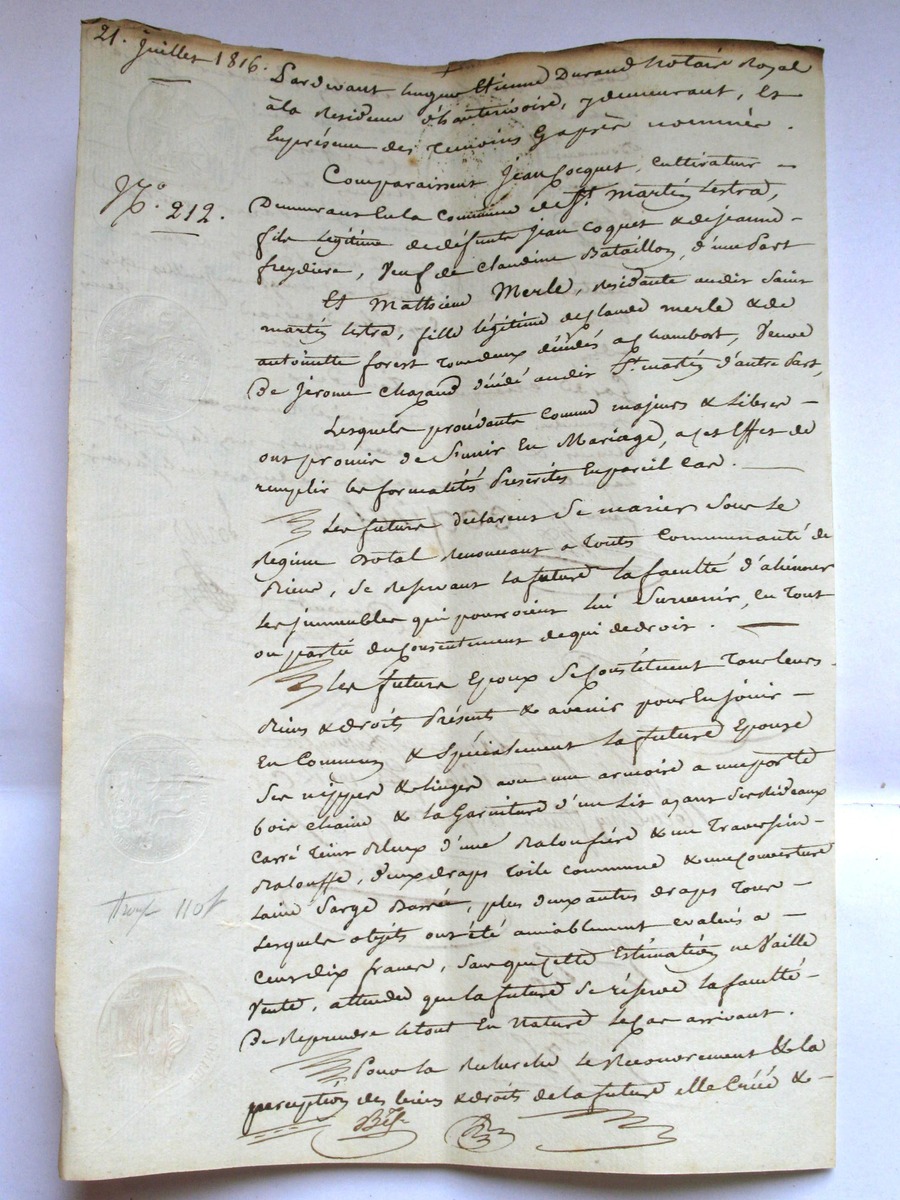 21. Juillet 1816.
Pardevant hugue Etienne Durand Notaire Royal
à la Residence d'hauterivoire, y demeurant, et
En présence des temoins Cy après nommés.
Comparaissent Jean Coquet, cultivateur
N.º 212.
Demeurant En la Commune de St. martin Lestra,
fils légitime de défunts jean Coquet & de jeanne
freydiere, Veuf de Claudine Bataillon, d'une Part
Et Mathieue Merle, residante audit Saint
martin Lestra, fille légitime de Claude merle & de
antoinette forest tous deux décédés a Chambost, Veuve
De Jerome Chazaud décédé audit St. martin d'autre Part,
Lesquels procédants Comme majeurs & Libres
ont promis de S'unir En Mariage, a cet Effet de
remplir les formalités Prescrites En pareil Cas.
Les futurs declarent Se marier Sous Le
Regime Dotal Renonçant a Toute Communauté de
Biens, Se Reservant La future la faculté d'aliéner
Les jmmeubles qui pourroient lui Survenir, En Tout
ou partie du Consentement de qui de droit.
Les futurs Epoux Se Constituent Tous Leurs
Biens & droits Présents & avenir pour En Jouir
En Commun & Spécialement La future Epouse
Ses nippes & Linges avec une armoire a une porte
bois chaine & La Garniture d'un Lit ayant Ses Rideaux
Carré Teint Bleux d'une Balouffière & un Traversin
Balouffe, deux draps Toile commune & une Couverture
Laine Sarge Barrée, plus deux autres draps Tous
Lesquels objets ont été amiablement evalués a
Cent dix francs, Sans que cette Estimation ne Vaille
Vente, attendu que la future Se réserve La faculté
De Reprendre Le tout En Nature Le Cas arrivant.
110 f
Pour la Recherche Le Recouvrement & La
perception des biens & droits de La future elle Créé &